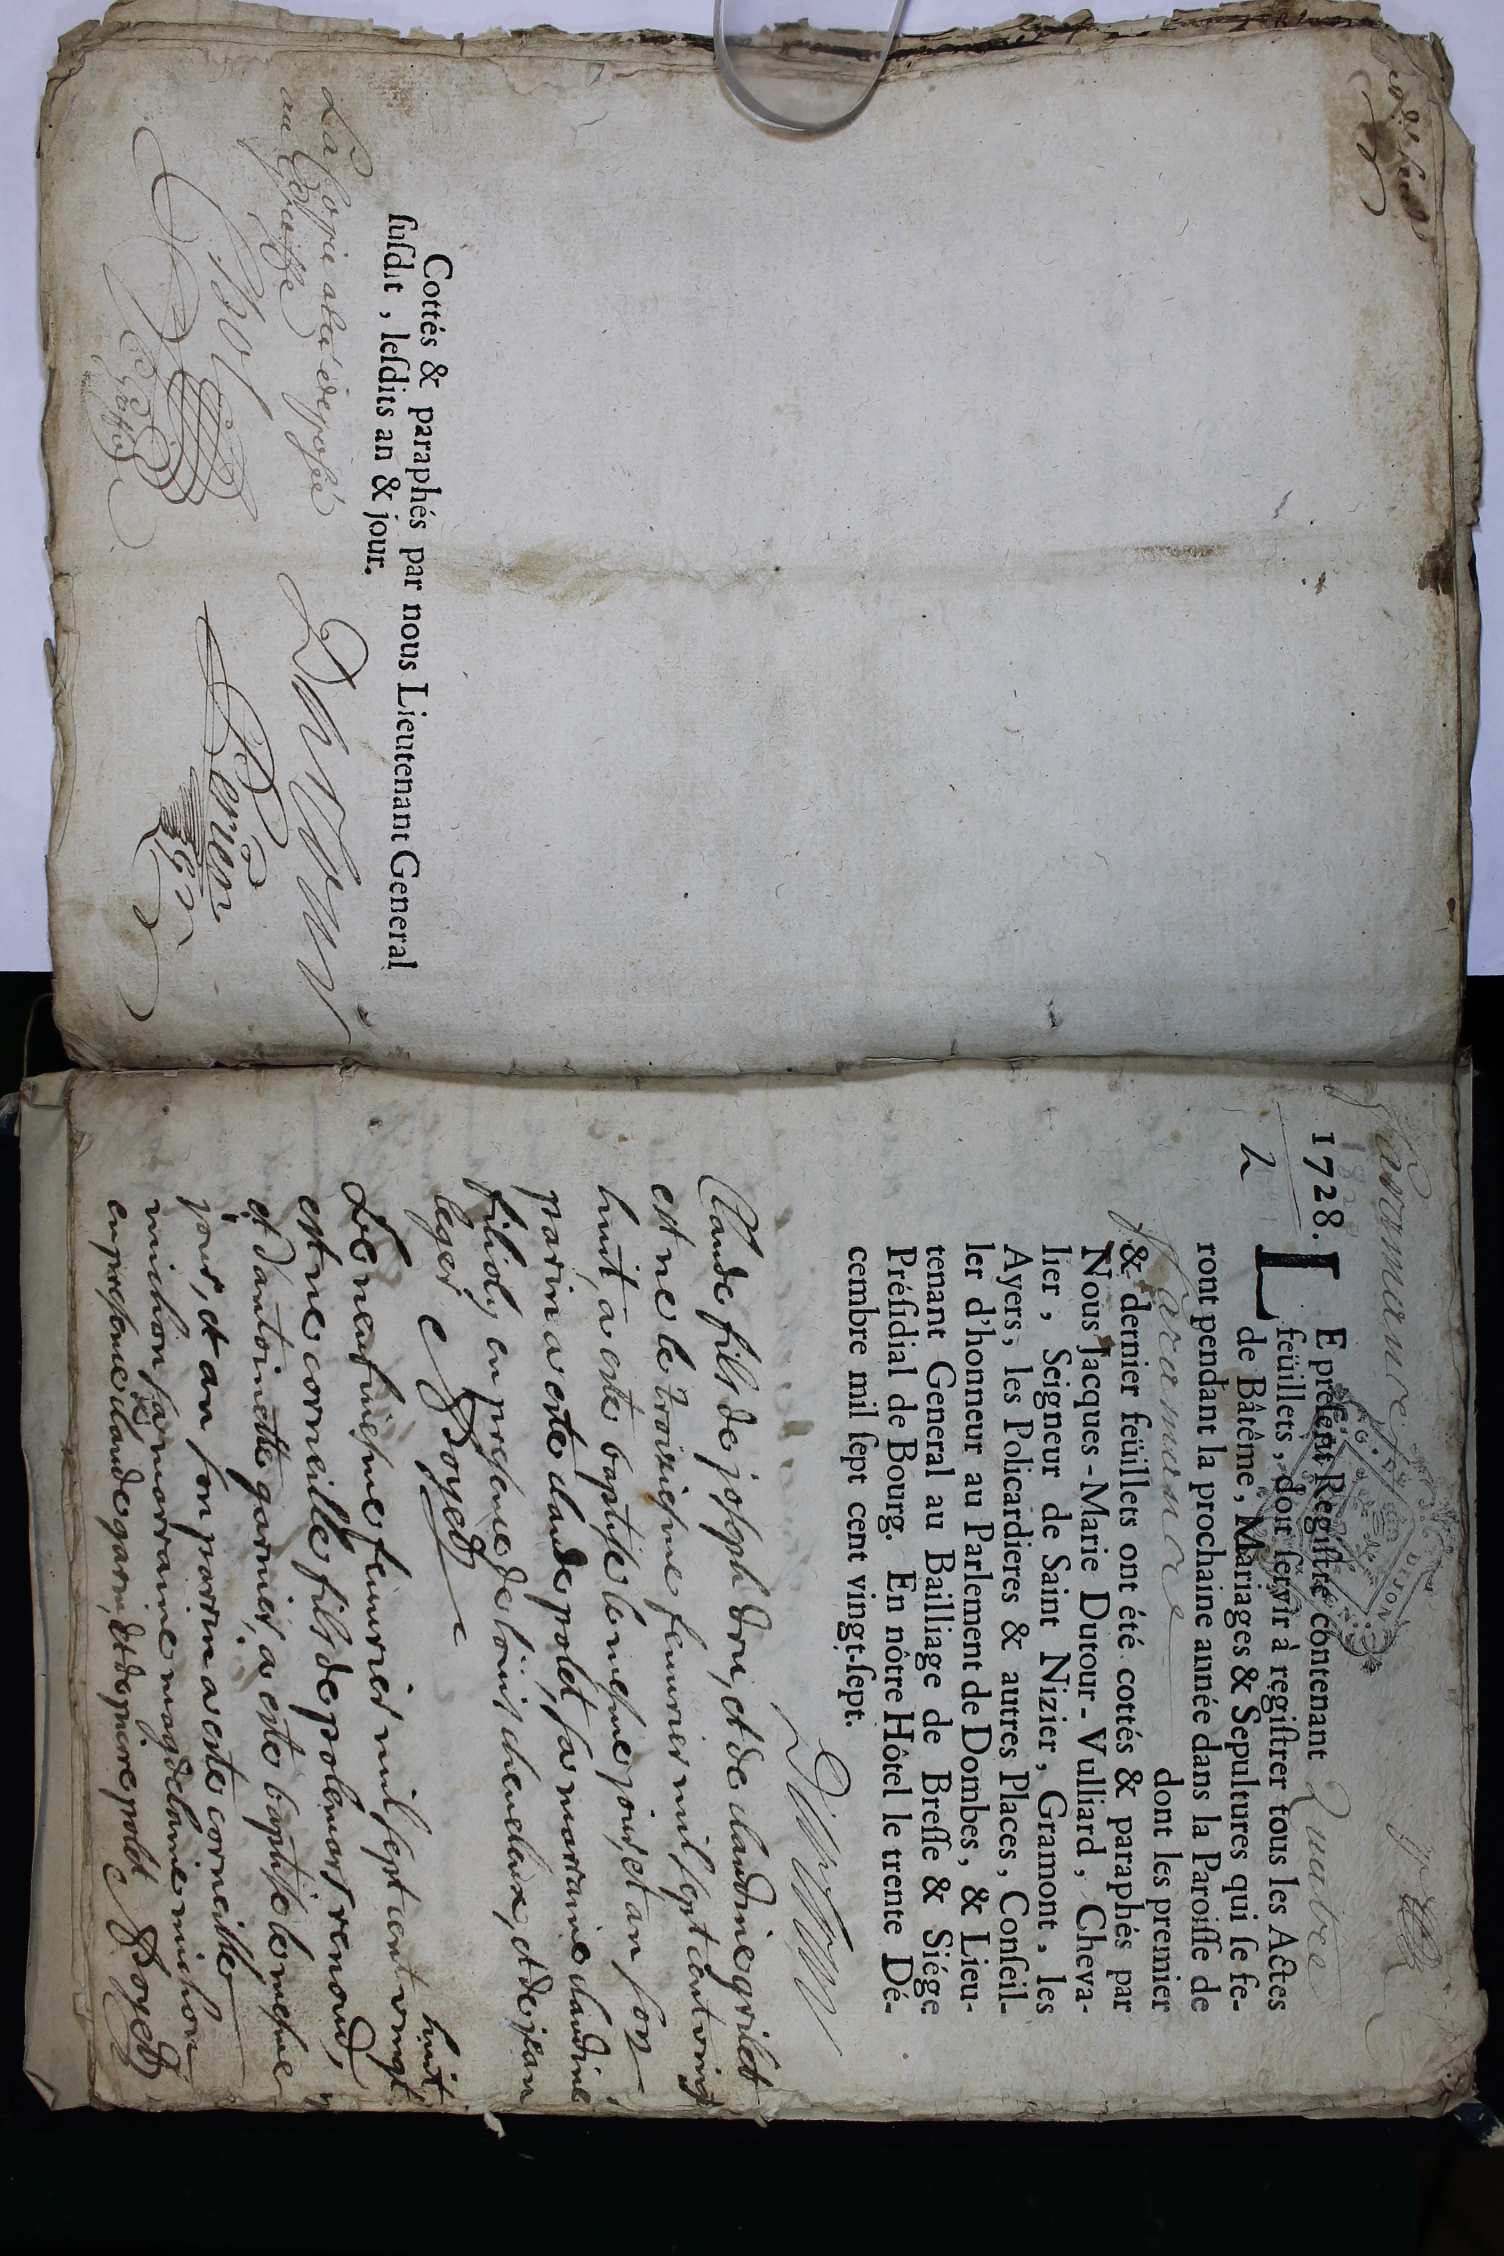 Cottés & paraphés par nous Lieutenant General
ſuſdit, leſdits an & jour.
La Copie a ete deposé
au Greffe
Perier
Varamance
1728.
2
LE preſent Regiſtre contenant Quatre
feüillets, doit ſervir à regiſtrer tous les Actes
de Bâtême, Mariages & Sepultures qui ſe fe-
ront pendant la prochaine année dans la Paroiſſe de
Varamance dont les premier
& dernier feüillets ont été cottés & paraphés par
Nous Jacques-Marie Dutour-Vulliard, Cheva-
lier, Seigneur de Saint Nizier, Gramont, les
Ayers, les Policardieres & autres Places, Conſeil-
ler d'honneur au Parlement de Dombes, & Lieu-
tenant General au Bailliage de Breſſe & Siége
Préſidial de Bourg. En nôtre Hôtel le trente Dé-
cembre mil ſept cent vingt-ſept.
Claude fils de joseph dru, et de claudine grillet
est ne le troisiesme feuurier mil sept cent vingt
huit, a este baptisé le mesme jour, et an son
parin a este claude polet, sa marraine claudine
filioly en presence de et de jean
leger
Le neufuiesme feuurier mil sept cent vingt huit
est ne corneille fils de renoud,
et dantoinette garnier, a este baptisé le mesme
jour, et an son parrin a este corneille
michon sa marraine magdelaine michon
en presence claude garin, et de pierre polet